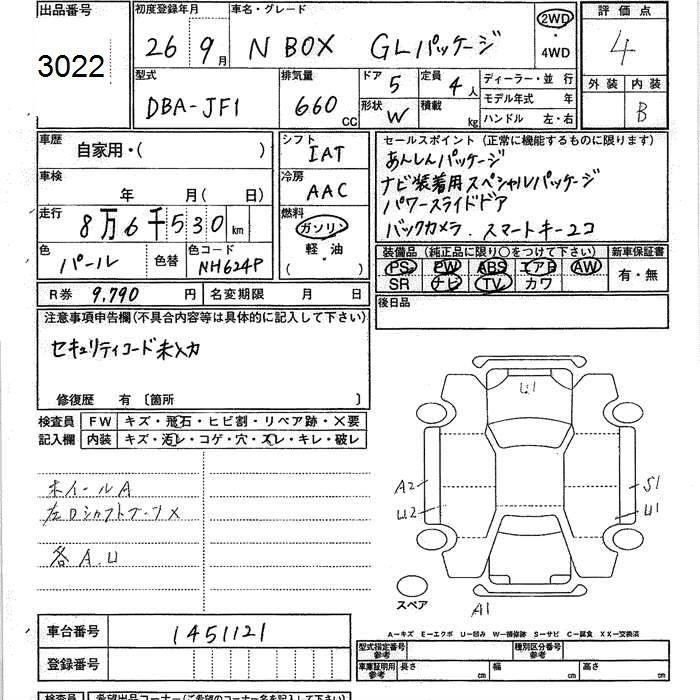 出品番号
3022
初度登録年月
26 9月
車名・グレード
N BOX GLパッケージ
2WD
・
4WD
評価点
4
外装 内装
B
型式
DBA-JF1
排気量
660 cc
ドア 5
定員 4人
形状 W
積載 kg
ディーラー・並行
モデル年式 年
ハンドル 左・右
車歴
自家用・( )
車検
年 月( 日)
走行
8万6千530km
色
パール
色替
色コード
NH624P
シフト
IAT
冷房
AAC
燃料
ガソリン
・
軽・油
( )
セールスポイント(正常に機能するものに限ります)
あんしんパッケージ
ナビ装着用スペシャルパッケージ
パワースライドドア
バックカメラ.スマートキー2コ
装備品(純正品に限り○をつけて下さい)
PS PW ABS エアB AW
SR ナビ TV カワ
新車保証書
有・無
後日品
R券 9,790 円
名変期限 月 日
注意事項申告欄(不具合内容等は具体的に記入して下さい)
セキュリティコード未入力
修復歴 有〔箇所 〕
検査員
記入欄
FW キズ・飛石・ヒビ割・リペア跡・×要
内装 キズ・汚レ・コゲ・穴・スレ・キレ・破レ
ホイールA
左Dシャフトブーツ×
各A.U
U1
A2
U2
S1
U1
A1
スペア
A—キズ E—エクボ U—凹み W—補修跡 S—サビ C—腐食 XX—交換済
車台番号 1451121
登録番号
型式指定番号
参考
種別区分番号
参考
車庫証明用
参考
長さ cm 幅 cm 高さ cm
検査員 希望出品コーナー(ご希望のコーナー名を記入下さい)